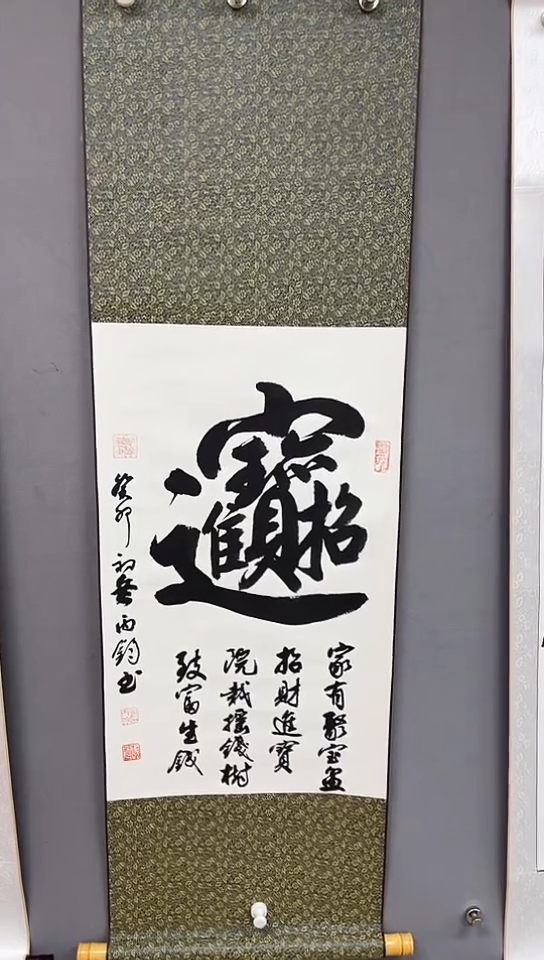 招財進寶
家有聚宝盆
招財進寶
院栽摇錢树
致富生錢
癸卯初丙鈞书